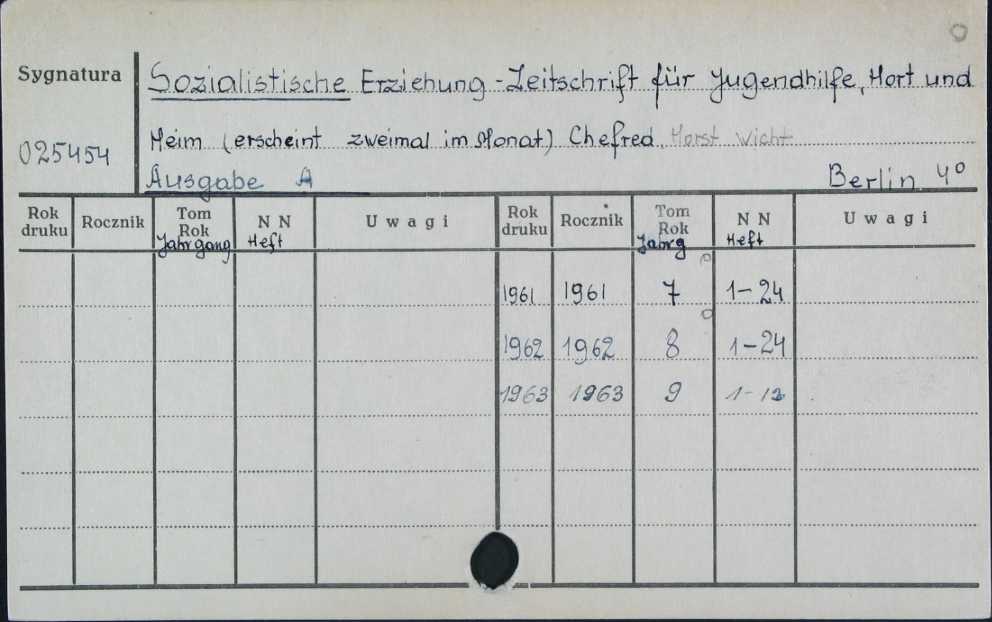 Sygnatura
Sozialistische Erziehung - Zeitschrift für Jugendhilfe, Hort und
025454
Heim (erscheint zweimal im Monat) Chefred. Horst Wicht
Ausgabe A Berlin 4°
Rok druku Rocznik Tom Rok Jahrgang N N Heft Uwagi Rok druku Rocznik Tom Rok Jahrg N N Heft Uwagi
1961 1961 7 1-24
1962 1962 8 1-24
1963 1963 9 1-12